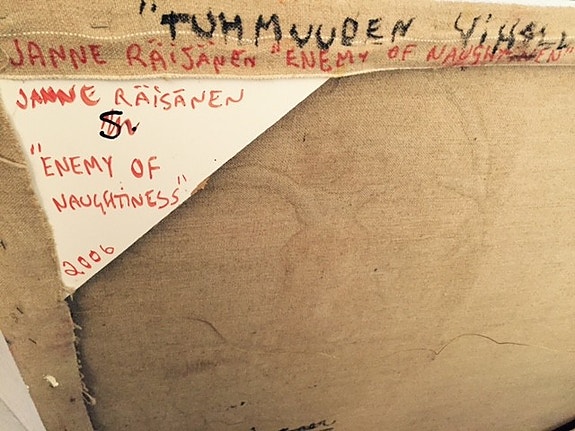 "TUHMUUDEN
JANNE RÄISÄNEN "ENEMY OF NAUGHTINESS"
JANNE RÄISÄNEN
"ENEMY OF
NAUGHTINESS"
2006